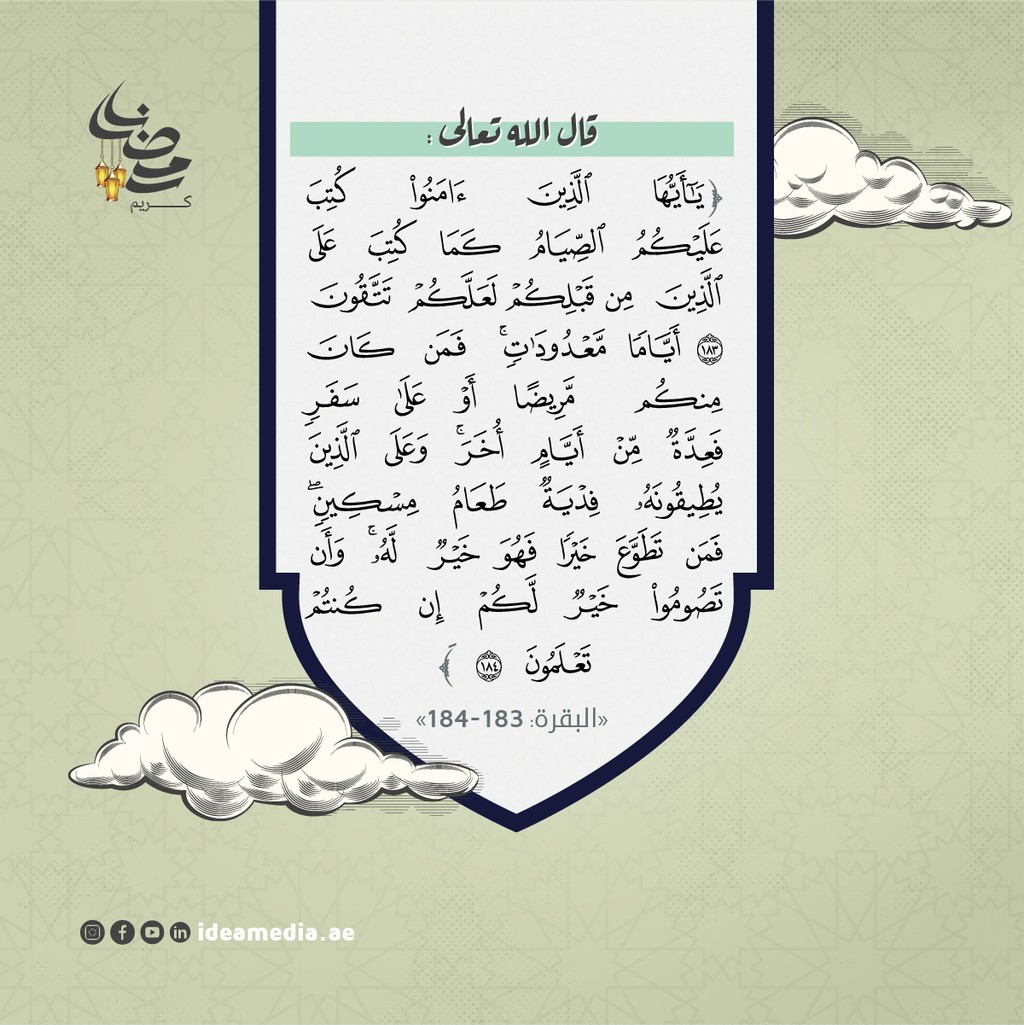 رمضان
كريم
قال الله تعالى :
﴿يَٰٓأَيُّهَا ٱلَّذِينَ ءَامَنُوا۟ كُتِبَ
عَلَيْكُمُ ٱلصِّيَامُ كَمَا كُتِبَ عَلَى
ٱلَّذِينَ مِن قَبْلِكُمْ لَعَلَّكُمْ تَتَّقُونَ
١٨٣ أَيَّامًا مَّعْدُودَٰتٍ ۚ فَمَن كَانَ
مِنكُم مَّرِيضًا أَوْ عَلَىٰ سَفَرٍ
فَعِدَّةٌ مِّنْ أَيَّامٍ أُخَرَ ۚ وَعَلَى ٱلَّذِينَ
يُطِيقُونَهُۥ فِدْيَةٌ طَعَامُ مِسْكِينٍ ۖ
فَمَن تَطَوَّعَ خَيْرًا فَهُوَ خَيْرٌ لَّهُۥ ۚ وَأَن
تَصُومُوا۟ خَيْرٌ لَّكُمْ إِن كُنتُمْ
تَعْلَمُونَ ١٨٤ ﴾
«البقرة: 183-184»
ideamedia.ae